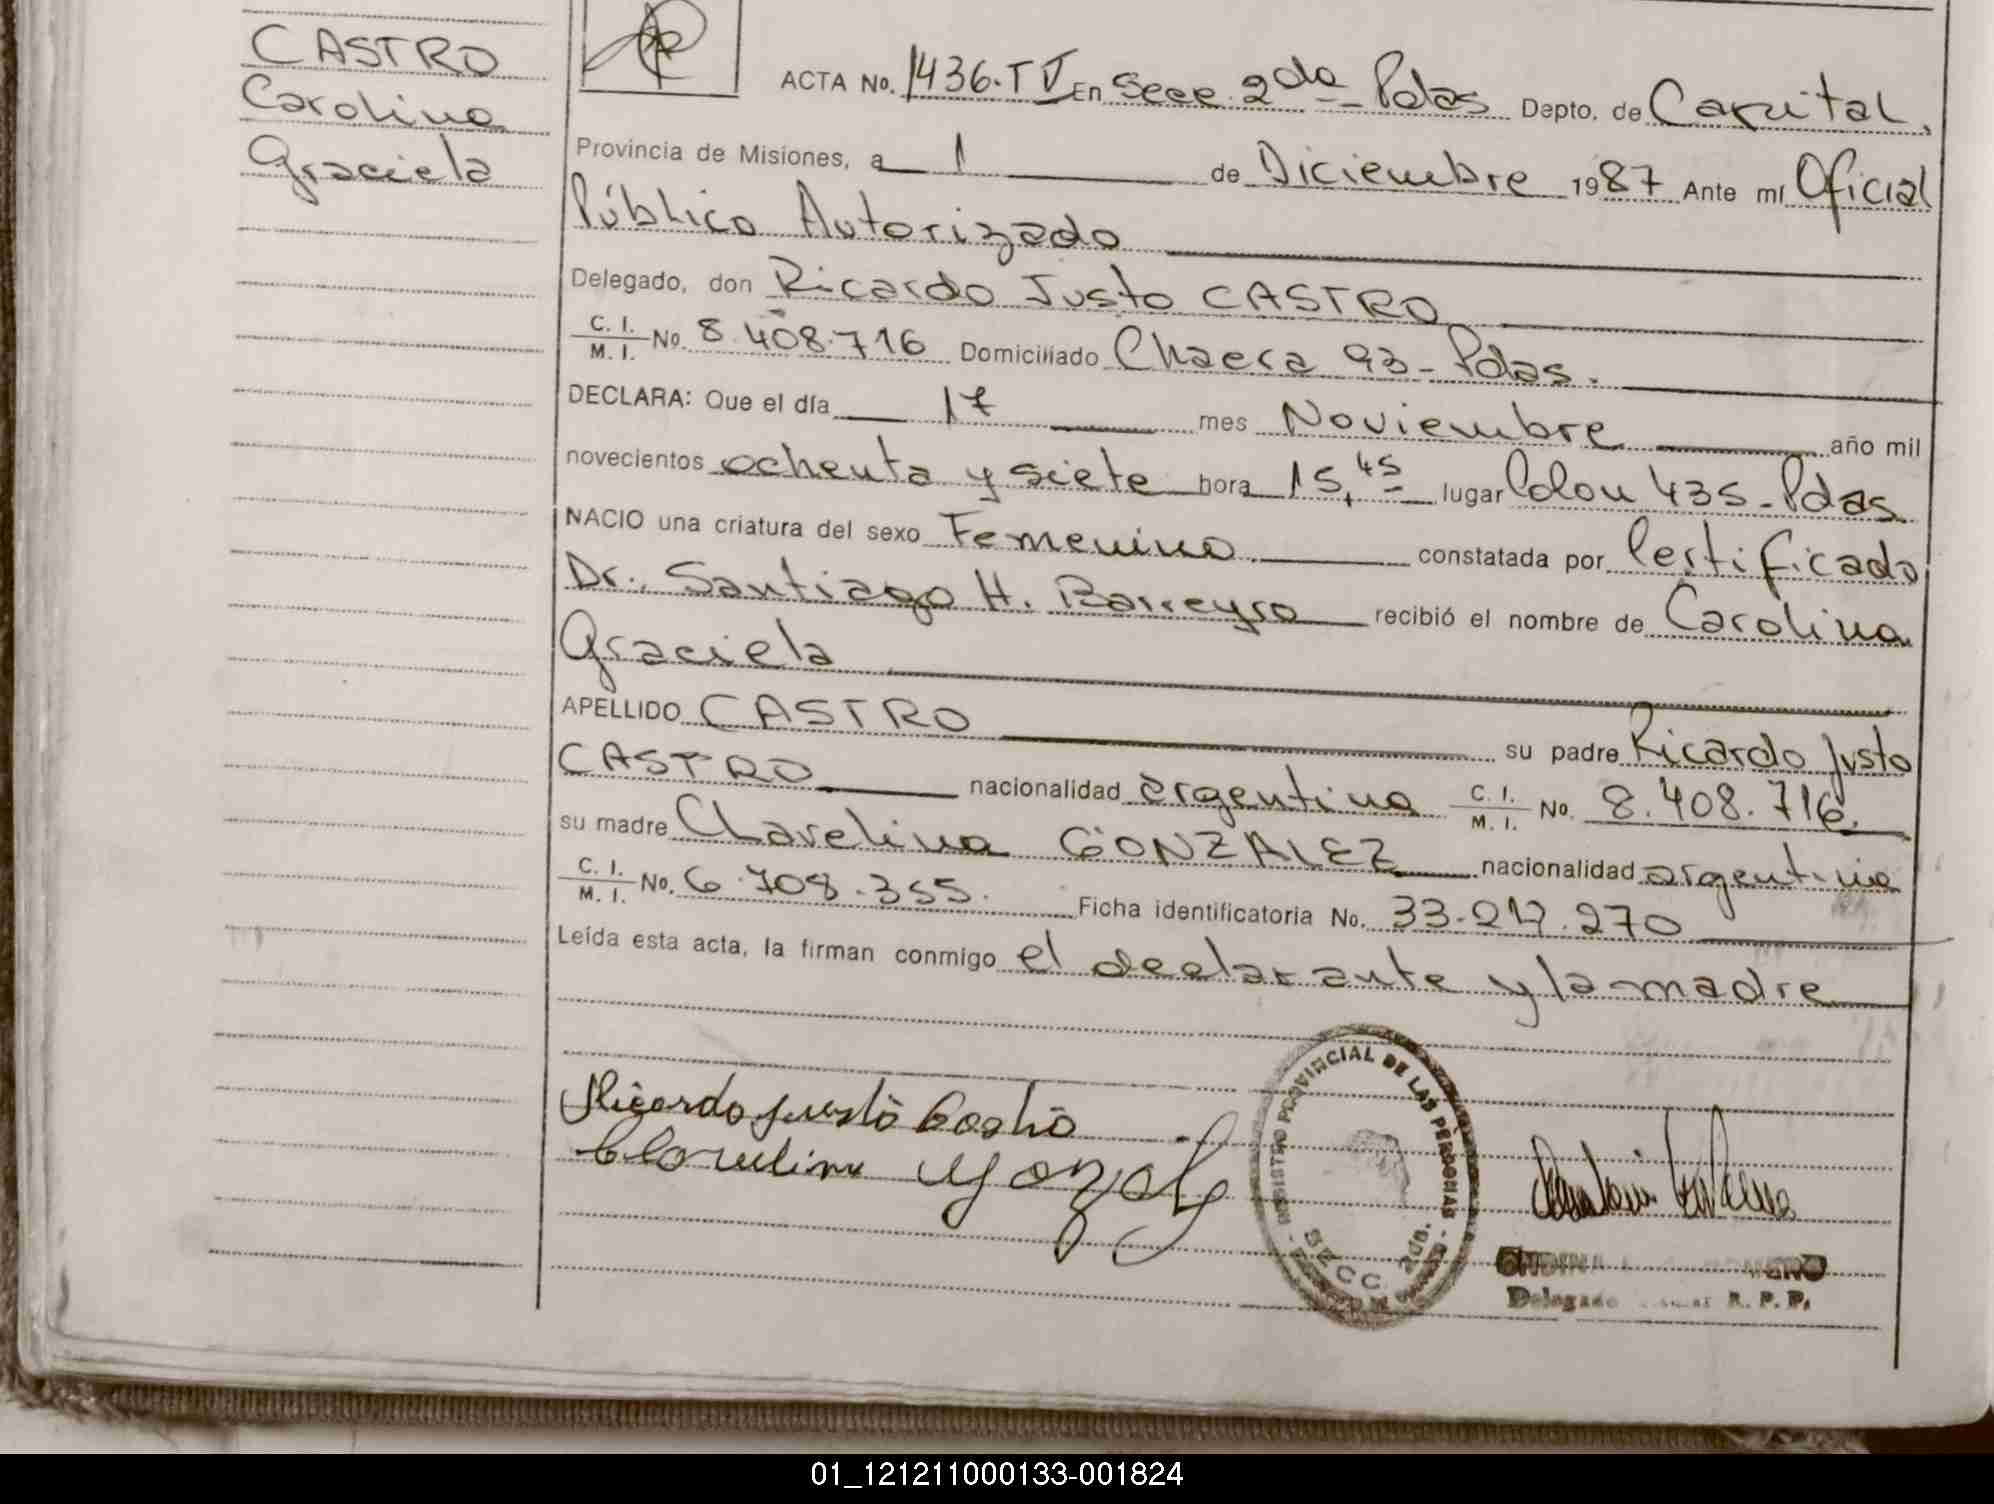 CASTRO
Carolina
Graciela
ACTA No. 1436.T V En Secc. 2da Pdas Depto. de Capital,
Provincia de Misiones, a 1 de Diciembre 1987 Ante mí Oficial
Público Autorizado
Delegado, don Ricardo Justo CASTRO
C. I. M. I. No. 8.408.716 Domiciliado Chacra 93 - Pdas.
DECLARA: Que el día 17 mes Noviembre año mil
novecientos ochenta y siete hora 15,45 lugar Colon 435 - Pdas
NACIO una criatura del sexo Femenino constatada por Certificado
Dr. Santiago H. Barreyro recibió el nombre de Carolina
Graciela
APELLIDO CASTRO su padre Ricardo Justo
CASTRO nacionalidad argentina C. I. M. I. No. 8.408.716.
su madre Clavelina GONZALEZ nacionalidad argentina
C. I. M. I. No. 6.708.355. Ficha identificatoria No. 33.217.270
Leída esta acta, la firman conmigo el declarante y la madre
Ricardo Justo Castro
Clavelina Gonzalez
REGISTRO PROVINCIAL DE LAS PERSONAS
SECC. 2da.
Delegado R. P. P.
01_121211000133-001824